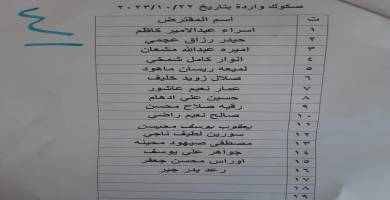 ٤
صكوك واردة بتاريخ ٢٠٢٣/١٠/٢٢
ت اسم المقترض
١ اسراء عبدالامير كاظم
٢ حيدر رزاق عجمي
٣ اميره عبدالله مشعان
٤ انوار كامل شمخي
٥ لميعه ريسان ماهود
٦ صلال زويد خليف
٧ عمار نعيم عاشور
٨ حسين علي ادهام
٩ رقيه صلاح محسن
١٠ صالح نعيم راضي
١١ يعقوب يوسف محيسن
١٢ سورين لطيف ناجي
١٣ مصطفى صيهود محينه
١٤ جواهر علي يوسف
١٥ اوراس محسن جعفر
١٦ رعد بدر جبر
١٧
١٨
١٩